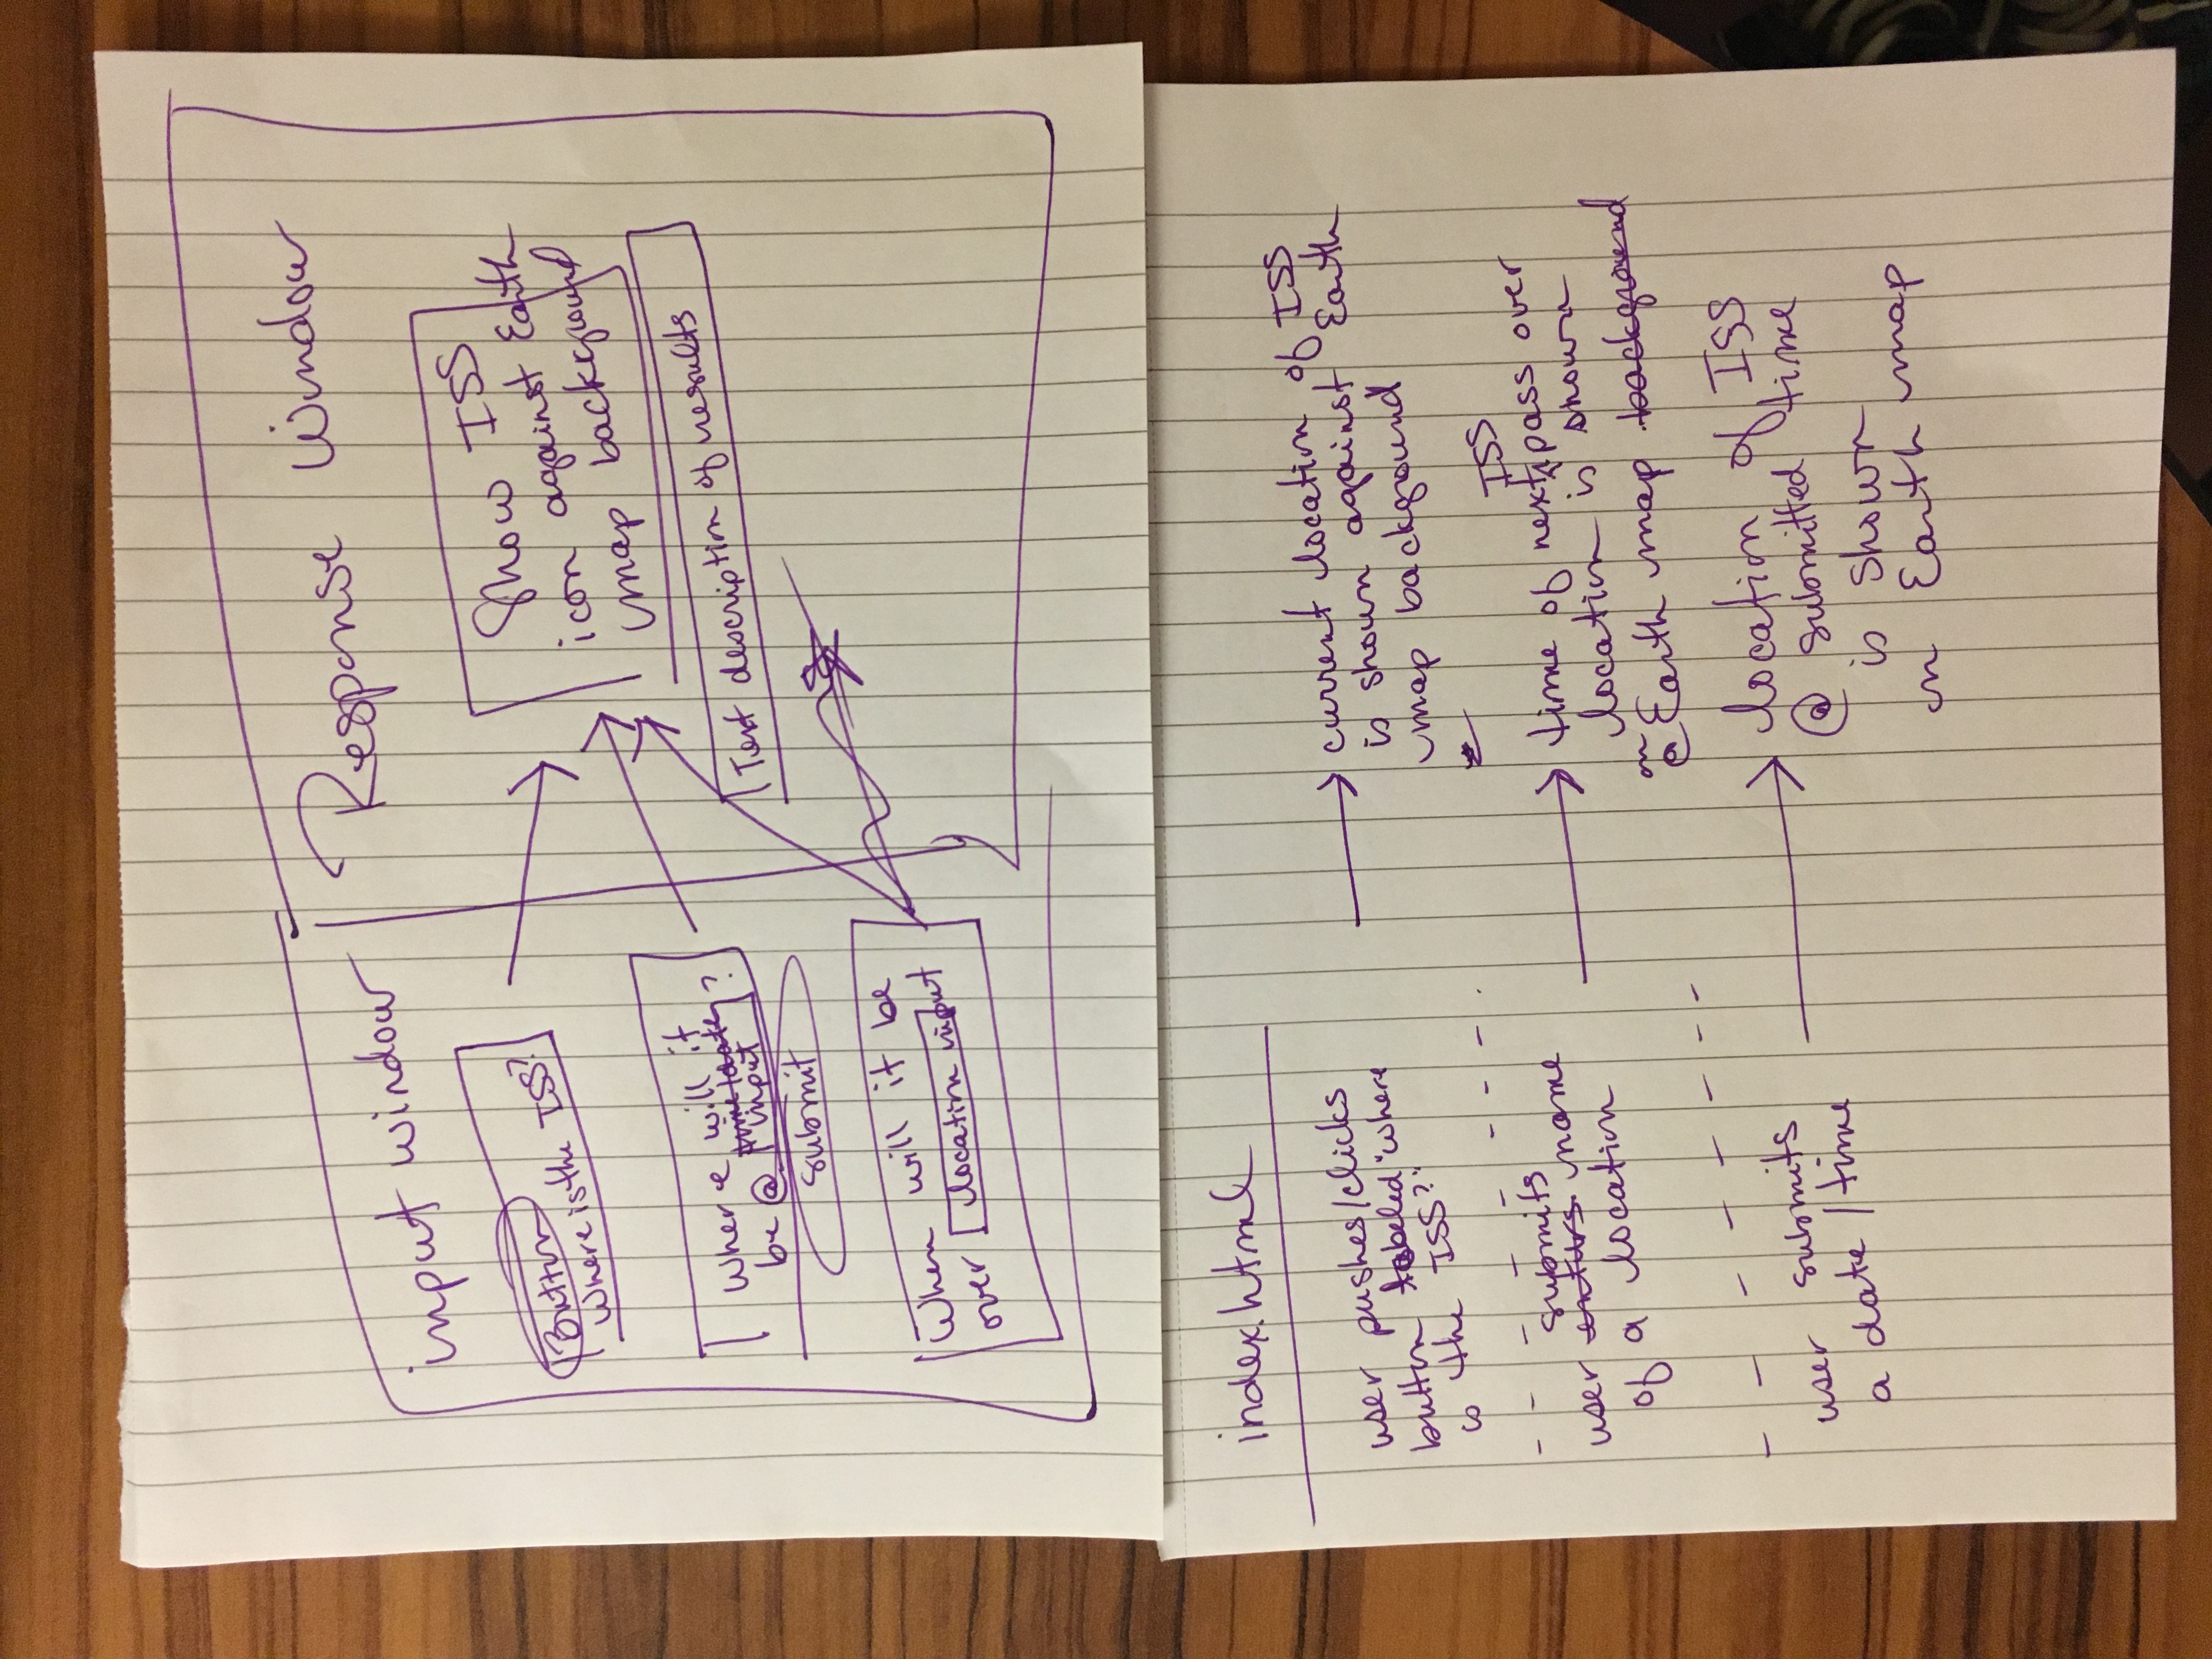 input window
Button
Where is the ISS?
Where will it
be @ time/date ?
input
submit
When will it be
over location input
Response Window
Show ISS
icon against Earth
map background
Text description of results
index.html
user pushes/clicks
button labeled "where
is the ISS?"
current location of ISS
is shown against Earth
map background
submits
user enters name
of a location
ISS
time of next pass over
location is shown
on
@ Earth map background
user submits
a date/time
location of ISS
@ submitted time
is shown
on Earth map